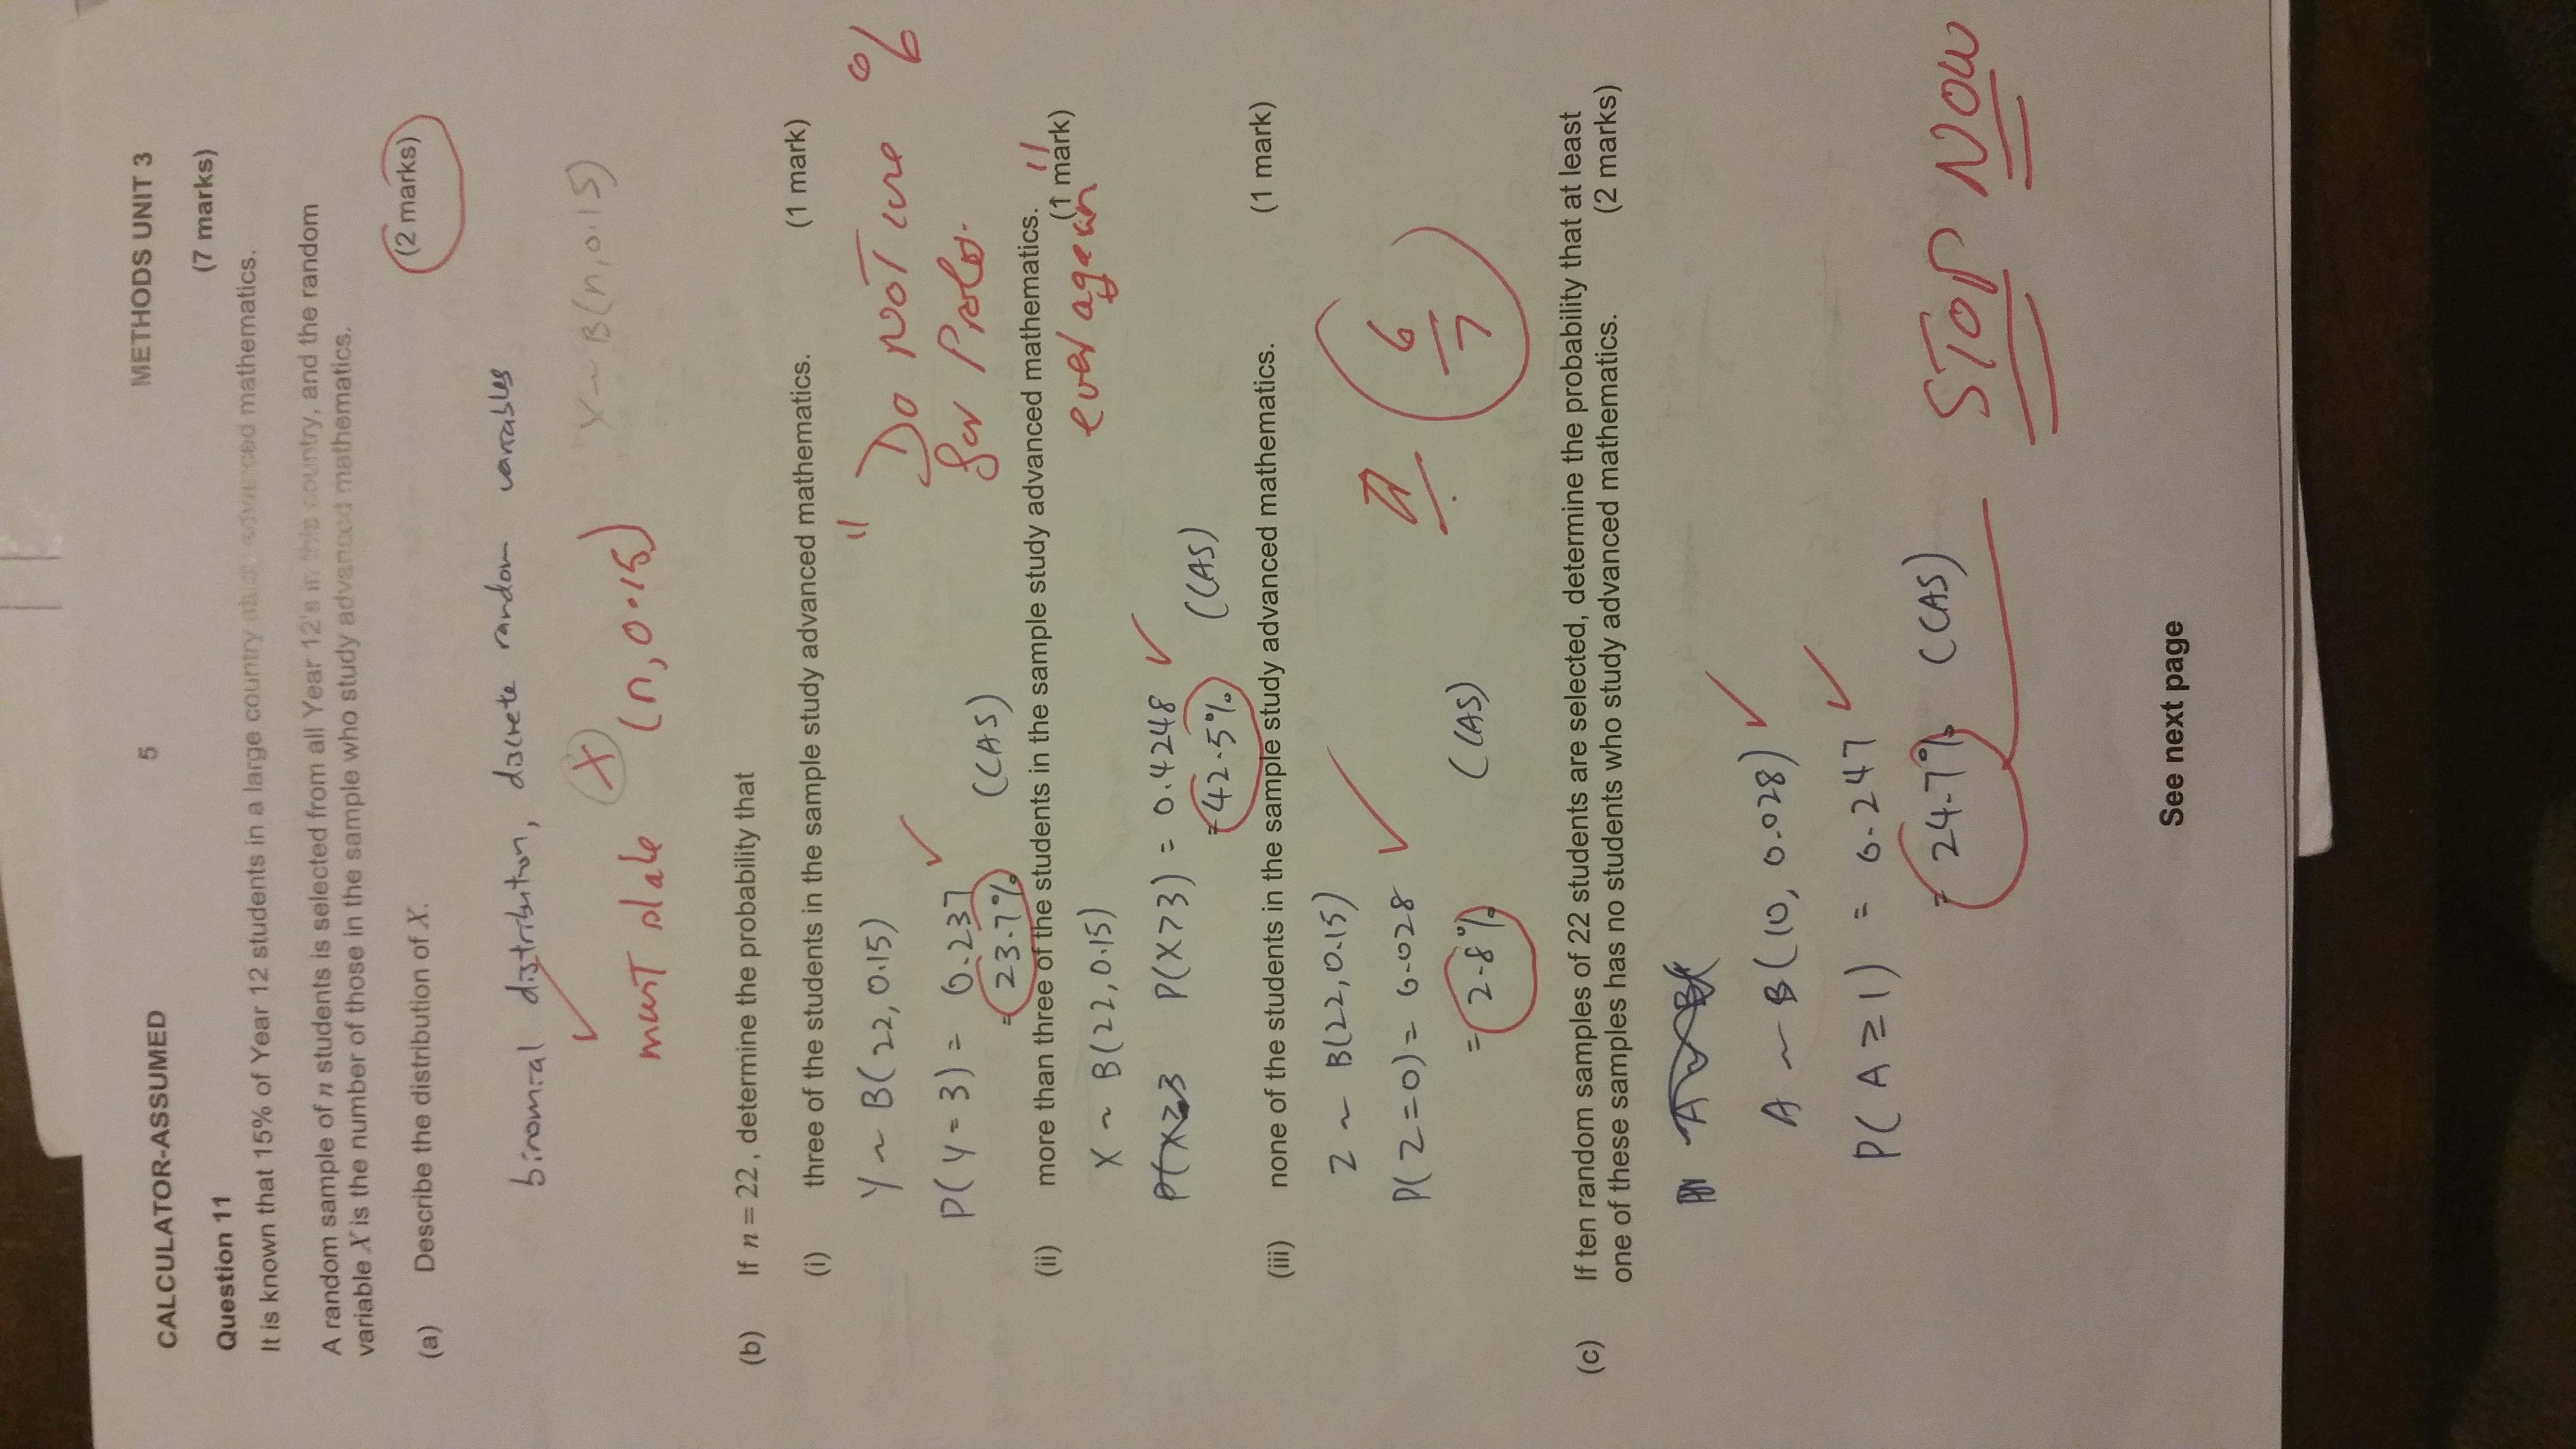 CALCULATOR-ASSUMED 5 METHODS UNIT 3
Question 11 (7 marks)
It is known that 15% of Year 12 students in a large country study advanced mathematics.
A random sample of n students is selected from all Year 12's in this country, and the random
variable X is the number of those in the sample who study advanced mathematics.
(a) Describe the distribution of X. (2 marks)
binomial distribution, discrete random variables
X X ~ B(n, 0.15)
must state (n, 0.15)
(b) If n = 22, determine the probability that
(i) three of the students in the sample study advanced mathematics. (1 mark)
Y ~ B(22, 0.15)
" Do NOT use %
P(Y = 3) = 0.237
for Prob.
= 23.7% (CAS)
(ii) more than three of the students in the sample study advanced mathematics. (1 mark)
ever again "
X ~ B(22, 0.15)
P(X≥3 P(X>3) = 0.4248
= 42.5% (CAS)
(iii) none of the students in the sample study advanced mathematics. (1 mark)
Z ~ B(22, 0.15)
P(Z=0) = 0.028
6/7
= 2.8% (CAS)
(c) If ten random samples of 22 students are selected, determine the probability that at least
one of these samples has no students who study advanced mathematics. (2 marks)
A ~ B(10, 0.028)
P(A ≥ 1) = 0.247
= 24.7% (CAS) STOP NOW
See next page